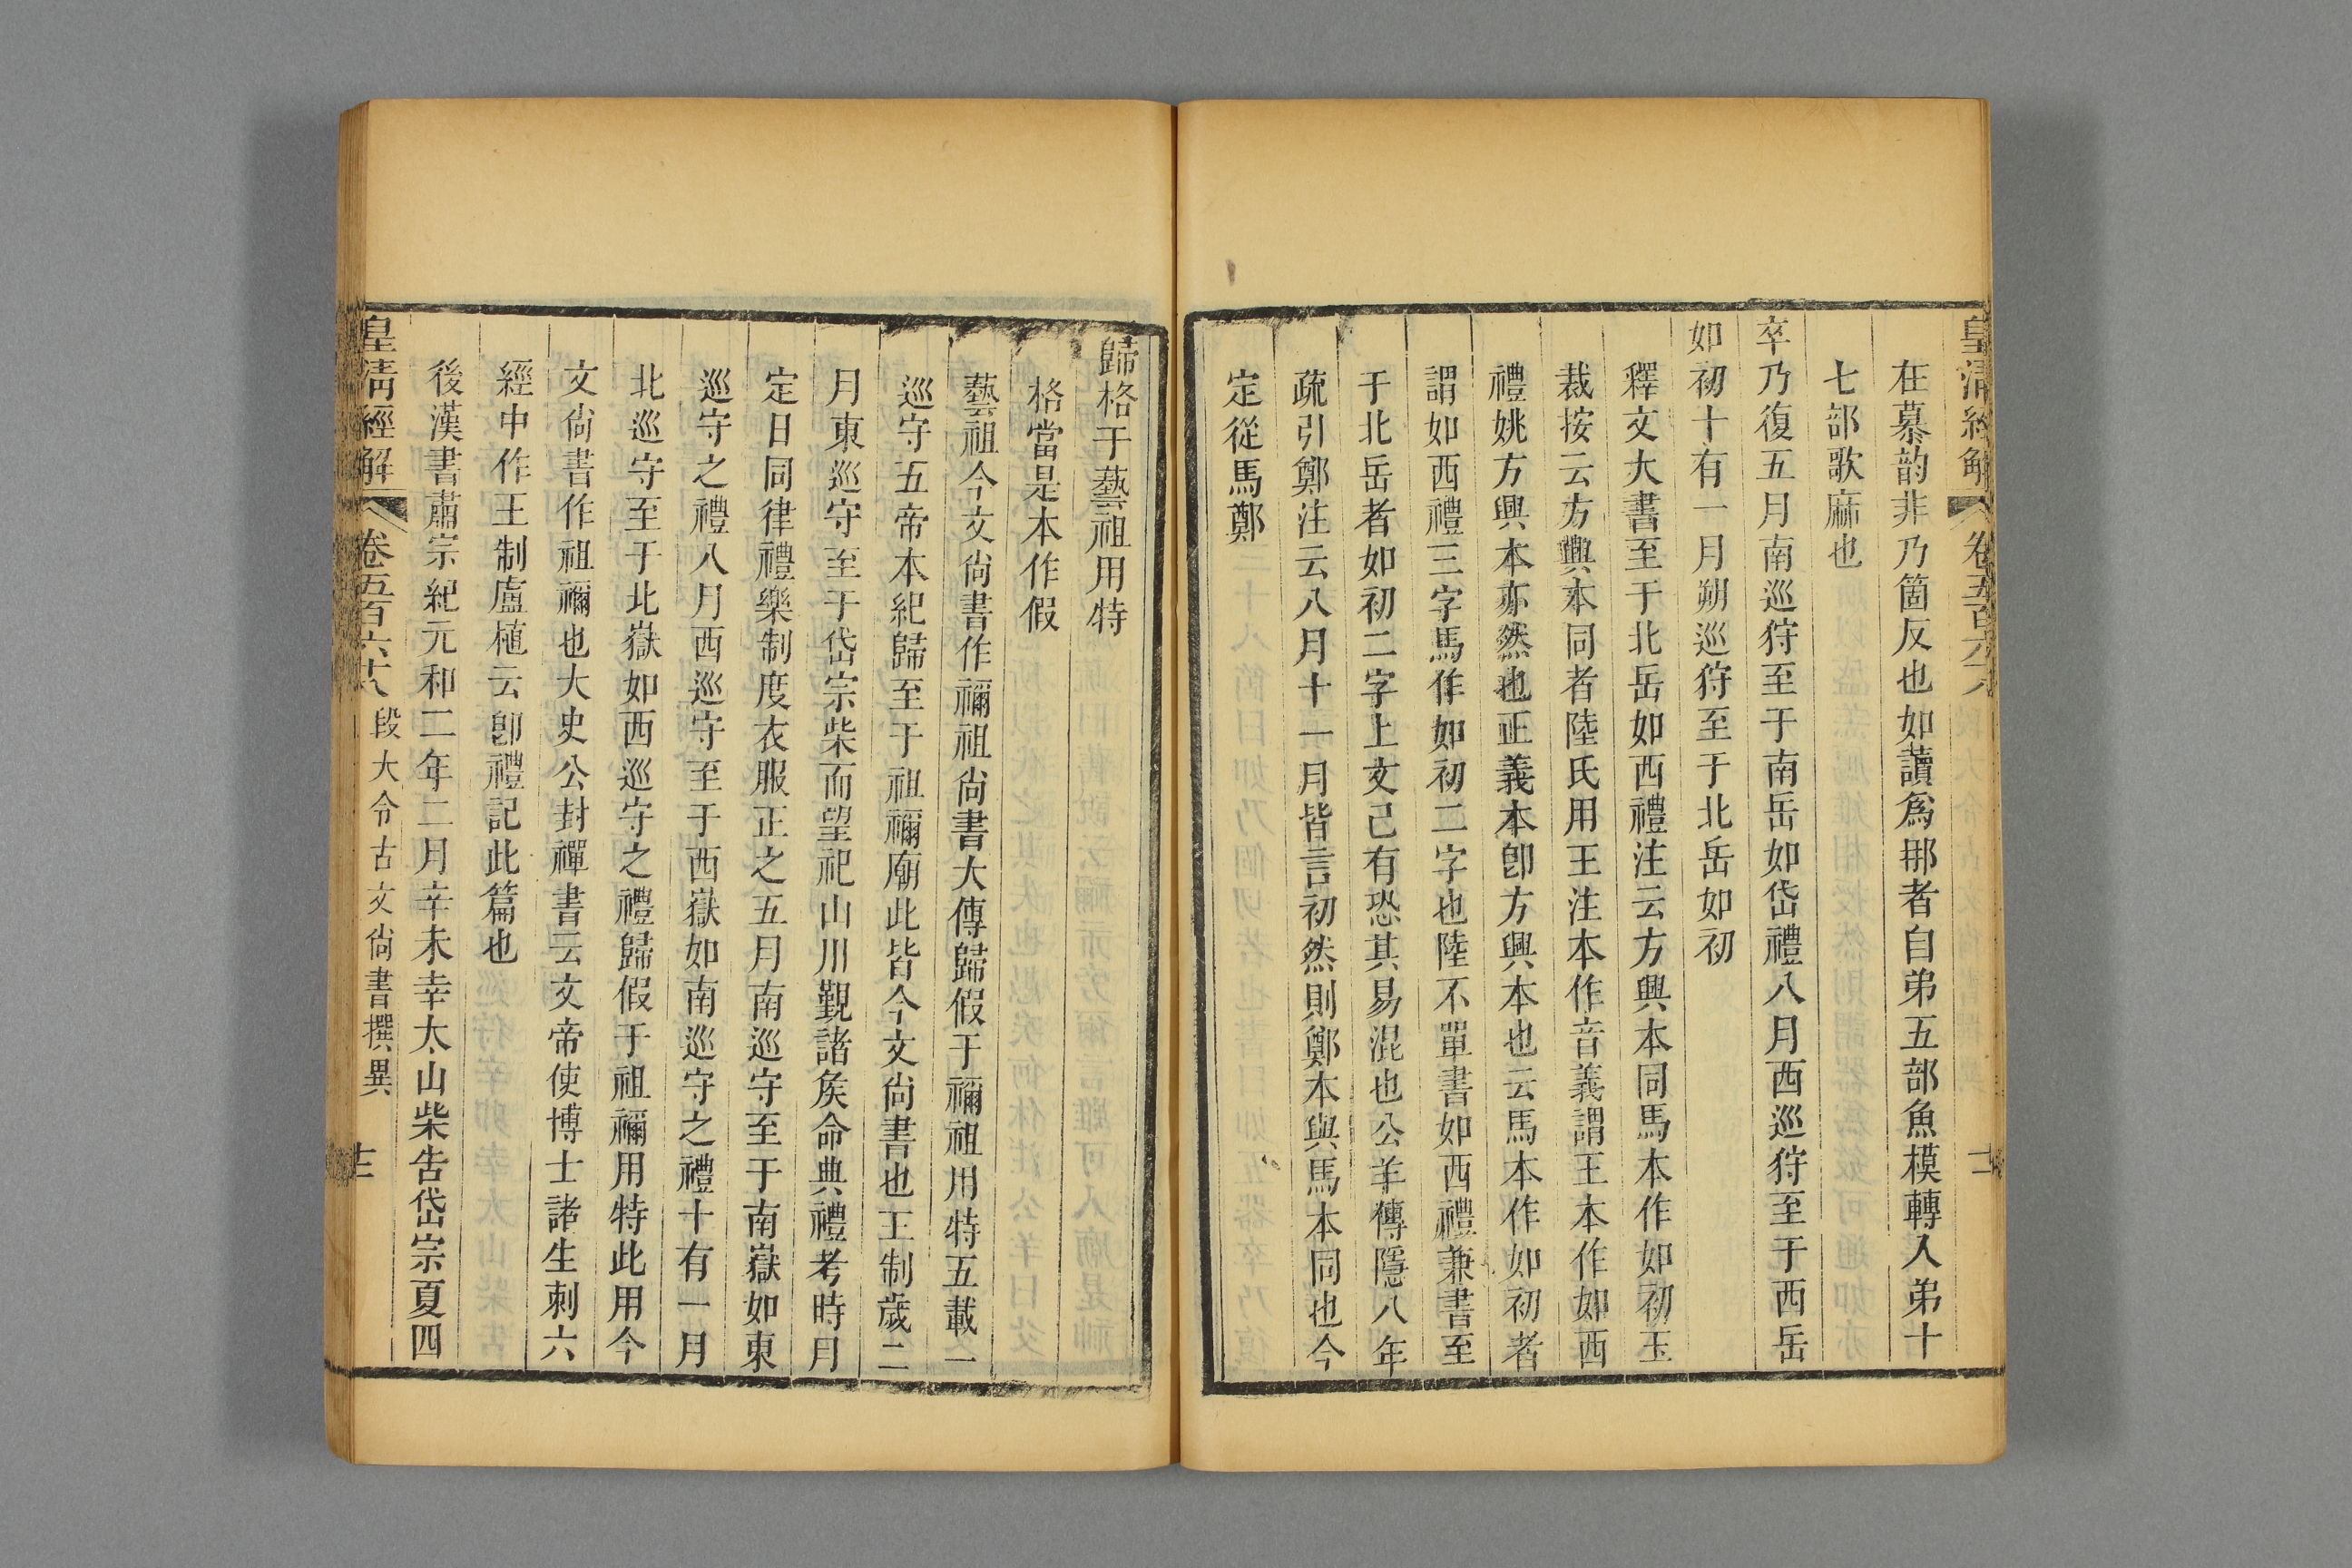 皇清經解 卷五百六十八
在慕韵非乃箇反也如讀爲挪者自弟五部魚模轉入弟十
七部歌麻也
卒乃復五月南巡狩至于南岳如岱禮八月西巡狩至于西岳
如初十有一月朔巡狩至于北岳如初
釋文大書至于北岳如西禮注云方興本同馬本作如初玉
裁按云方興本同者陸氏用王注本作音義謂王本作如西
禮姚方興本亦然也正義本卽方興本也云馬本作如初者
謂如西禮三字馬作如初二字也陸不單書如西禮兼書至
于北岳者如初二字上文己有恐其易混也公羊傳隱八年
疏引鄭注云八月十一月皆言初然則鄭本與馬本同也今
定從馬鄭
歸格于藝祖用特
格當是本作假
藝祖今文尙書作禰祖尙書大傳歸假于禰祖用特五載一
巡守五帝本紀歸至于祖禰廟此皆今文尙書也王制歲二
月東巡守至于岱宗柴而望祀山川覲諸矦命典禮考時月
定日同律禮樂制度衣服正之五月南巡守至于南嶽如東
巡守之禮八月西巡守至于西嶽如南巡守之禮十有一月
北巡守至于北嶽如西巡守之禮歸假于祖禰用特此用今
文尙書作祖禰也大史公封禪書云文帝使博士諸生刺六
經中作王制盧植云卽禮記此篇也
後漢書肅宗紀元和二年二月辛未幸太山柴告岱宗夏四
皇清經解 卷五百六十八 段大令古文尙書撰異 十三